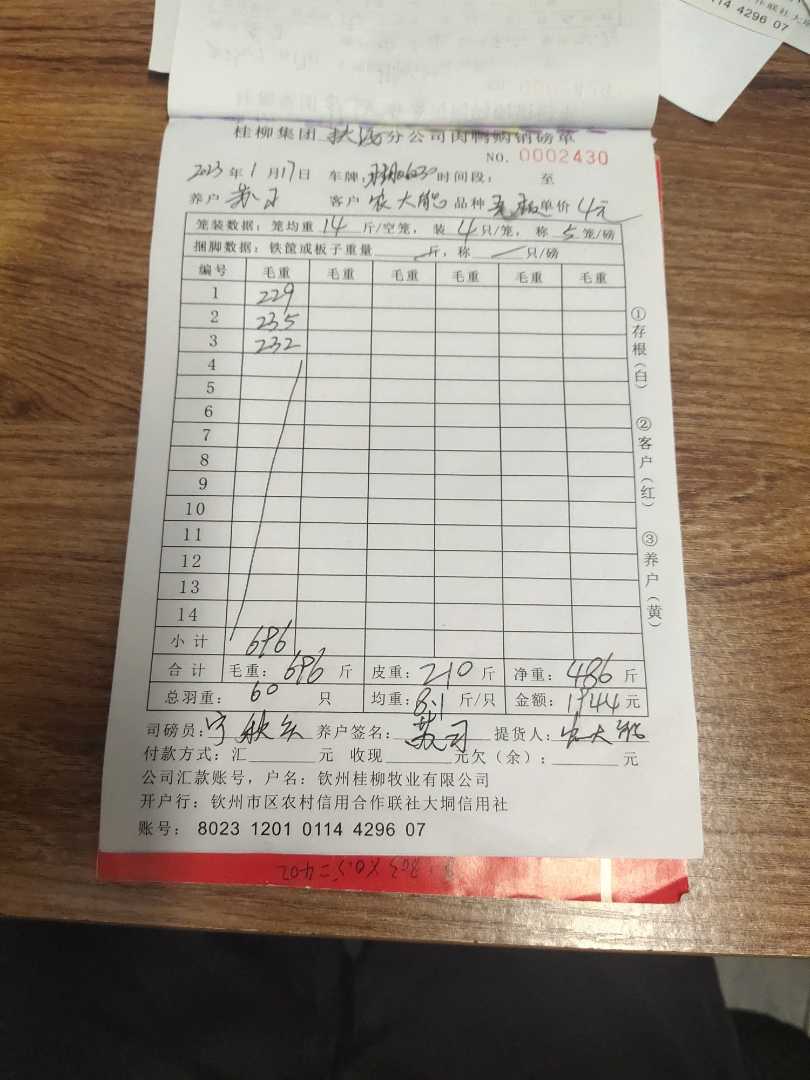 作联社大垌
0114 4296 07
桂柳集团 分公司肉鸭购销磅单
NO. 0002430
2023年1月17日 车牌: 时间段: 至
养户 苏司 客户 农大能 品种 单价 4元
笼装数据: 笼均重 14 斤/空笼, 装 4 只/笼, 称 5 笼/磅
捆脚数据: 铁筐或板子重量 斤, 称 只/磅
编号 毛重 毛重 毛重 毛重 毛重 毛重
1 229
2 235
3 232
4
5
6
7
8
9
10
11
12
13
14
小计 696
合计 毛重: 696 斤 皮重: 210 斤 净重: 486 斤
总羽重: 60 只 均重: 8.1 斤/只 金额: 1944 元
司磅员: 养户签名: 苏司 提货人: 农大能
付款方式: 汇 元 收现 元欠(余): 元
公司汇款账号, 户名: 钦州桂柳牧业有限公司
开户行: 钦州市区农村信用合作联社大垌信用社
账号: 8023 1201 0114 4296 07
①存根(白) ②客户(红) ③养户(黄)
803×0.5=402